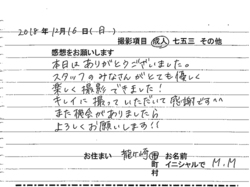 2018年12月16日(日)
撮影項目 成人 七五三 その他
感想をお願いします
本日はありがとうございました。
スタッフのみなさんがとても優しく
楽しく撮影できました！
キレイに撮っていただいて感謝です^^
また機会がありましたら
よろしくお願いします!!
お住まい 龍ケ崎 市町村 お名前 イニシャルで M.M